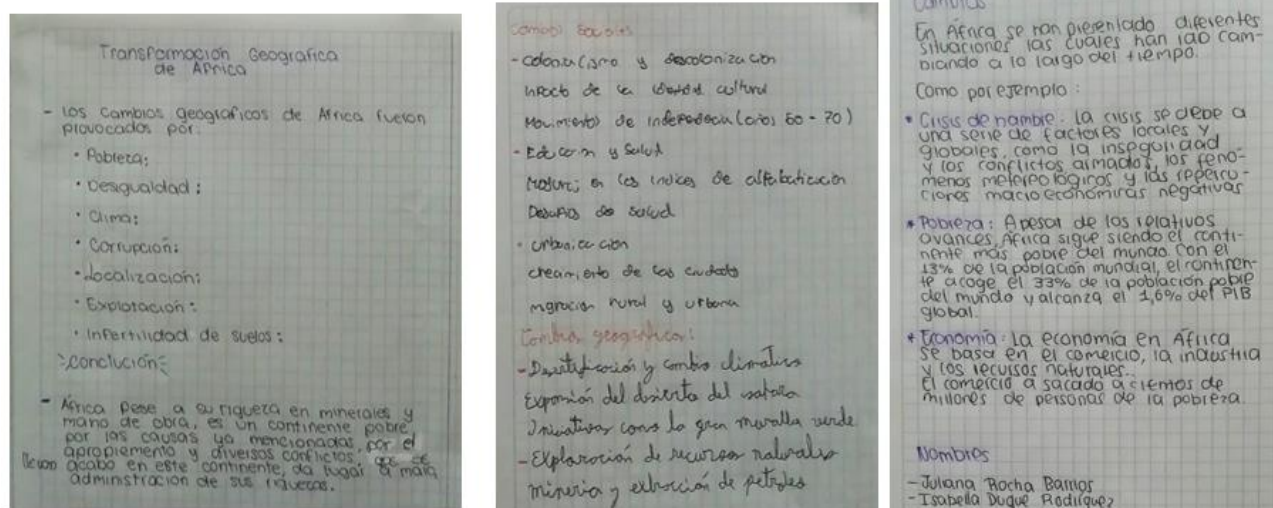 Transformación Geografica
de Africa
- Los cambios geograficos de Africa fueron
provocados por:
• Pobleza:
• Desigualdad:
• Clima:
• Corrupcion:
• Localización:
• Explotación:
• Infertilidad de suelos:
Conclución
- Africa pese a su riqueza en minerales y
mano de obra, es un continente pobre
por las causas ya mencionadas, por el
apropiemento y diversos conflictos, que se
llevan acabo en este continente, da lugar a mala
administracion de sus riquezas.
- colonialismo y descolonización
de la cultural
Movimientos de independencia (años 60 - 70)
- Educación y Salud
en los indices de alfabetización
de salud
- urbanización
de las ciudades
migracion rural y urbana
Cambios geograficos:
- Desertificación y cambio climatico
Expansión del desierto del sahara
Iniciativas como la gran muralla verde
- Explaración de recursos naturales
mineria y extracción de petroleo
Cambios
En África se han presentado diferentes
situaciones las cuales han ido cam-
biando a lo largo del tiempo.
Como por ejemplo:
* Crisis de hambre: la crisis se debe a
una serie de factores locales y
globales, como la inseguridad
y los conflictos armados, los feno-
menos metereológicos y las repercu-
ciones macroeconómicas negativas
* Pobreza: Apesar de los relativos
avances, África sigue siendo el conti-
nente más pobre del mundo. Con el
13% de la población mundial, el continen-
te acoge el 33% de la población pobre
del mundo y alcanza el 1,6% del PIB
global.
* Economía: La economía en África
se basa en el comercio, la industria
y los recursos naturales.
El comercio a sacado a cientos de
millones de personas de la pobreza.
Nombres
- Juliana Rocha Barrios
- Isabella Duque Rodriguez